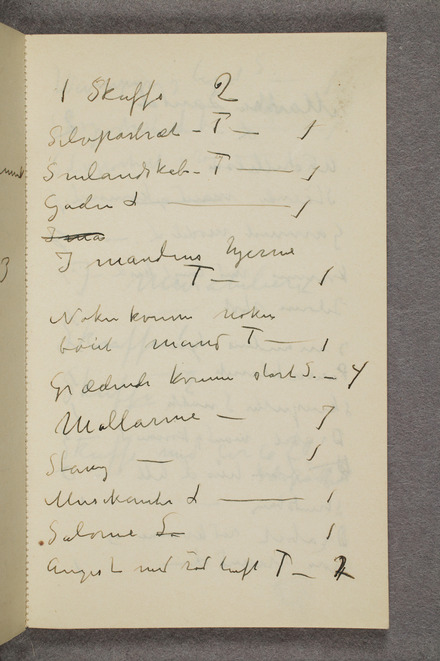 1 Skuffe 2
Selvportræt - T — 1
Smlandskab - T — 1
Gaden L — 1
I mandens hjerne
T — 1
Naken kvinne naken
böiet mand T — 1
Grædende kvinne stort S. — 4
Mallarme — 7
Stang — 1
Musikanter L — 1
Salome L — 1
Angest med röd luft T — 2